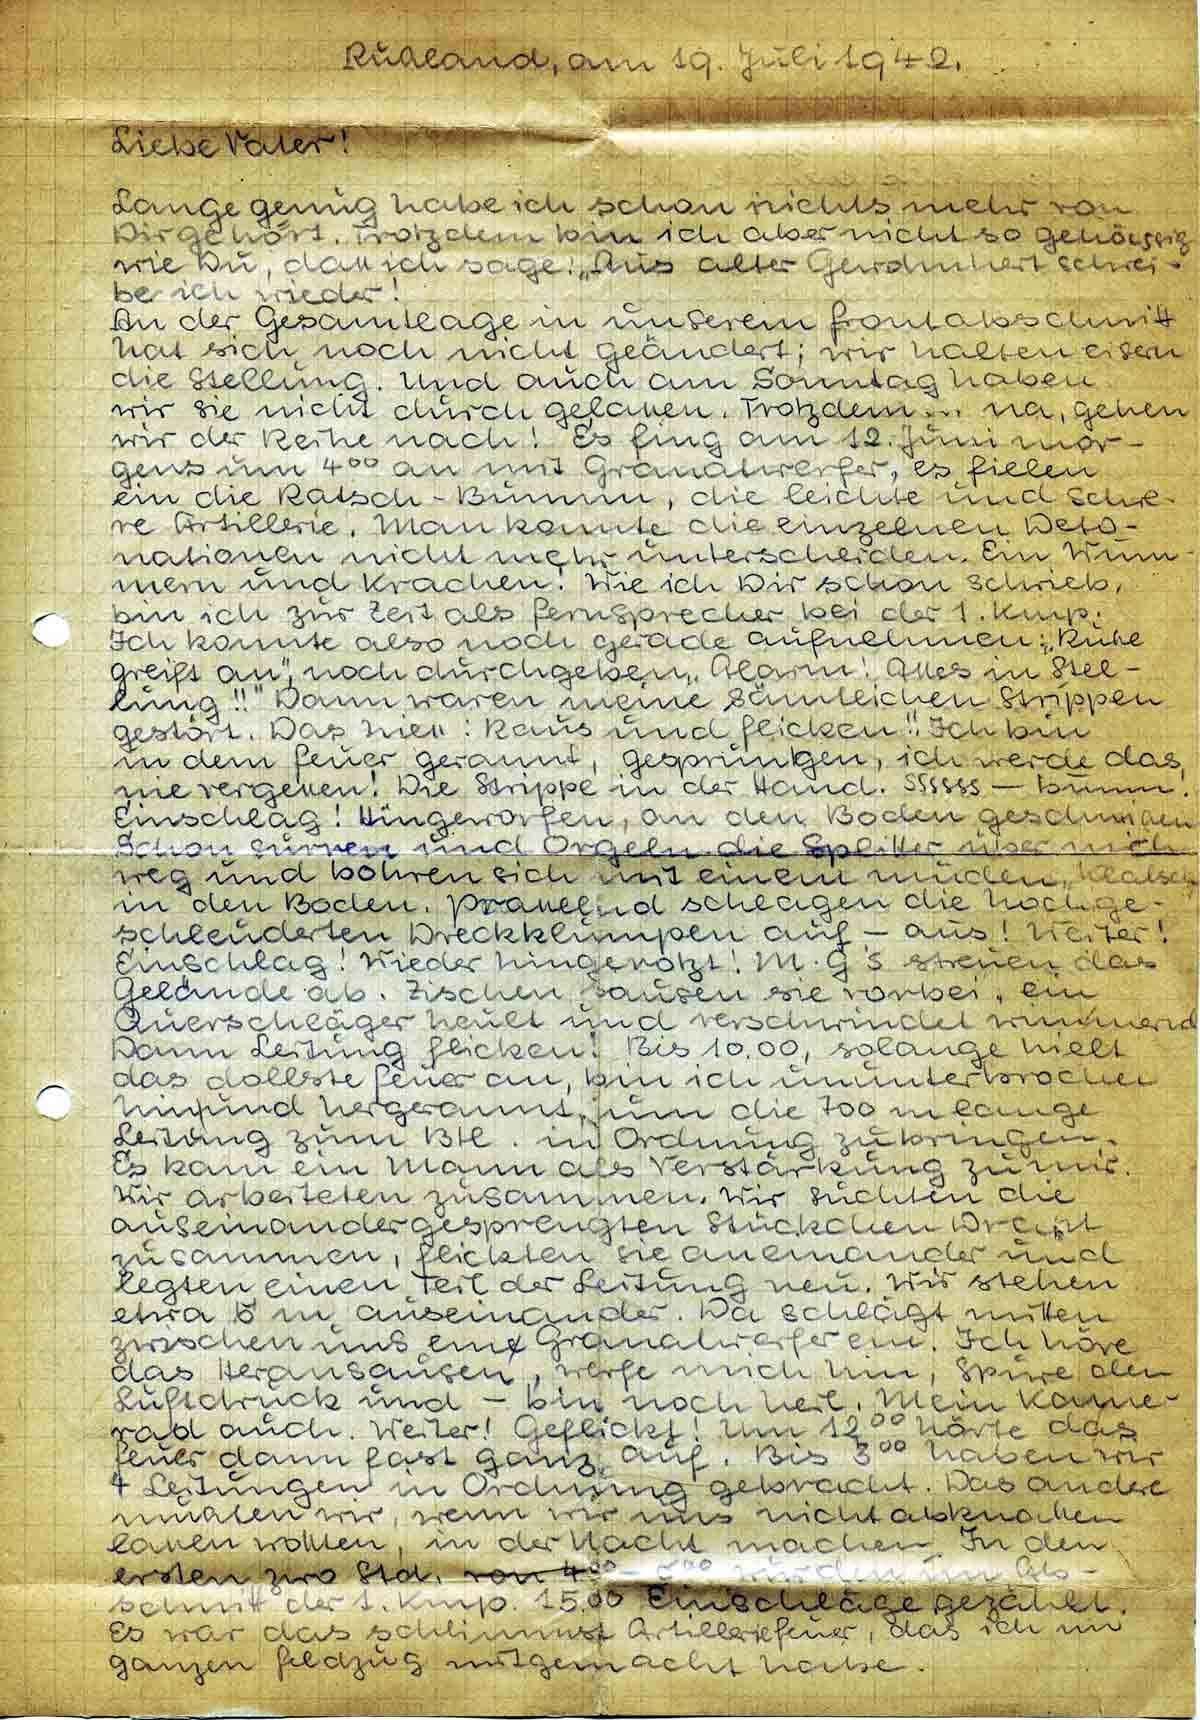 Rußland, am 19. Juli 1942.
Liebe Vater!
Lange genug habe ich schon nichts mehr von
Dir gehört. Trotzdem bin ich aber nicht so gehässig
wie Du, daß ich sage: „Aus alter Gewohnheit schrei-
be ich wieder!
An der Gesamtlage in unserem Frontabschnitt
hat sich noch nicht geändert; wir halten eisern
die Stellung. Und auch am Sonntag haben
wir sie nicht durchgelassen. Trotzdem... na, gehen
wir der Reihe nach! Es fing am 12. Juni mor-
gens um 4⁰⁰ an mit Granatwerfer, es fielen
ein die Ratsch-Bumm, die leichte und schwe-
re Artillerie. Man konnte die einzelnen Deto-
nationen nicht mehr unterscheiden. Ein Wum-
mern und Krachen! Wie ich Dir schon schrieb,
bin ich zur Zeit als Fernsprecher bei der 1. Kmp.
Ich konnte also noch gerade aufnehmen: „Ruhe
greift an", noch durchgeben „Alarm! Alles in Stel-
lung!!" Dann waren meine sämtlichen Strippen
gestört. Das hieß: Raus und flicken!! Ich bin
in dem Feuer gerannt, gesprungen, ich werde das
nie vergessen! Die Strippe in der Hand. Ssssss – bumm.
Einschlag! Hingeworfen, an den Boden geschmissen
Schon surren und Orgeln die Splitter über mich
weg und bohren sich mit einem müden „Klatsch
in den Boden. Prasselnd schlagen die hochge-
schleuderten Dreckklumpen auf – aus! Weiter!
Einschlag! Wieder hingerotzt! M.G's streuen das
Gelände ab. Zischen sausen sie vorbei, ein
Querschläger heult und verschwindet wummernd
Dann Leitung flicken! Bis 10.00, solange hielt
das dollste Feuer an, bin ich ununterbrochen
hin und hergerannt, um die 700 m lange
Leitung zum Btl. in Ordnung zu bringen.
Es kam ein Mann als Verstärkung zu mir.
Wir arbeiteten zusammen. Wir suchten die
auseinandergesprengten Stückchen Draht
zusammen, flickten sie aneinander und
legten einen Teil der Leitung neu. Wir stehen
etwa m auseinander. Da schlägt mitten
zwischen uns eine Granatwerfer ein. Ich höre
das Heransausen, werfe mich hin, spüre den
Luftdruck und – bin noch heil. Mein Kame-
rad auch. Weiter! Geflickt! Um 12⁰⁰ hörte das
Feuer dann fast ganz auf. Bis 3⁰⁰ haben wir
4 Leitungen in Ordnung gebracht. Das andere
mußten wir, wenn wir uns nicht abknallen
lassen wollten, in der Nacht machen. In den
ersten zwo Std. von 4⁰⁰ – wurden im Abs-
schnitt der 1. Kmp. 1500 Einschläge gezählt.
Es war das schlimmste Artilleriefeuer, das ich im
ganzen Feldzug mitgemacht habe.